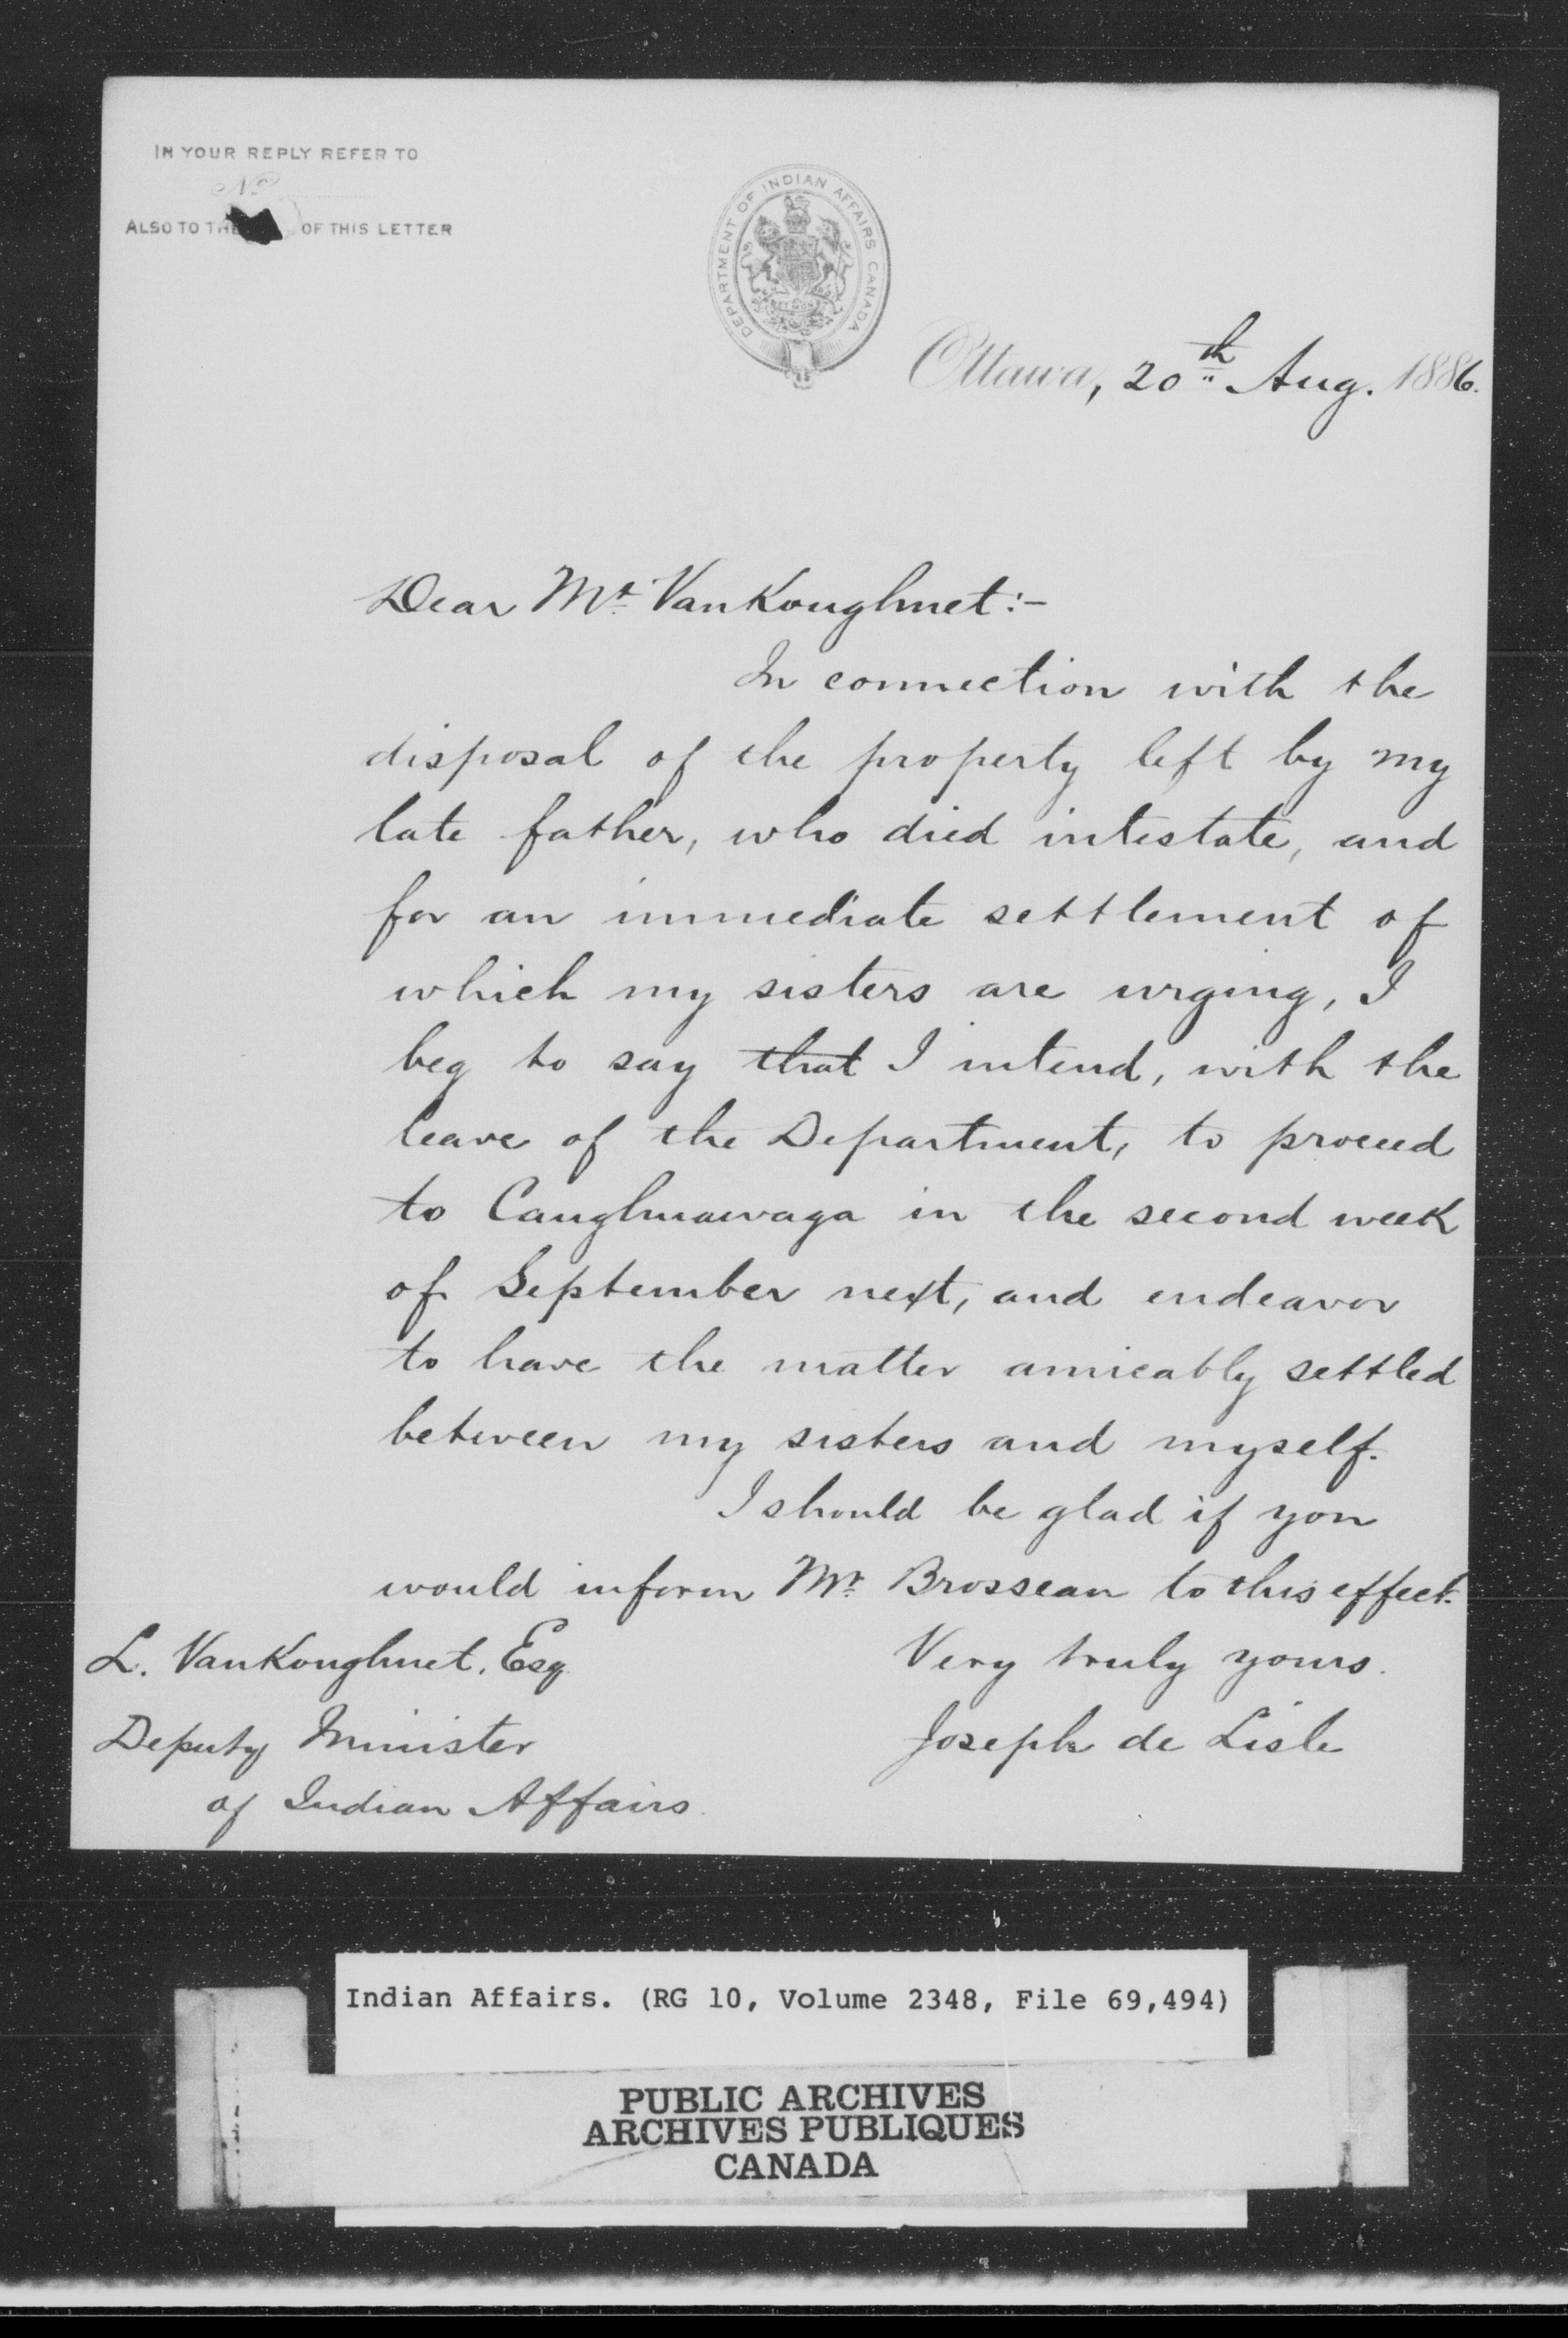 IN YOUR REPLY REFER TO
No
ALSO TO THE OF THIS LETTER
DEPARTMENT OF INDIAN AFFAIRS CANADA
Ottawa, 20th Aug. 1886.
Dear Mr. VanKoughnet:-
In connection with the
disposal of the property left by my
late father, who died intestate, and
for an immediate settlement of
which my sisters are urging, I
beg to say that I intend, with the
leave of the Department, to proceed
to Caughnawaga in the second week
of September next, and endeavor
to have the matter amicably settled
between my sisters and myself.
I should be glad if you
would inform Mr. Brosseau to this effect.
Very truly yours.
Joseph de Lisle
L. VanKoughnet, Esq.
Deputy Minister
of Indian Affairs.
Indian Affairs. (RG 10, Volume 2348, File 69,494)
PUBLIC ARCHIVES
ARCHIVES PUBLIQUES
CANADA